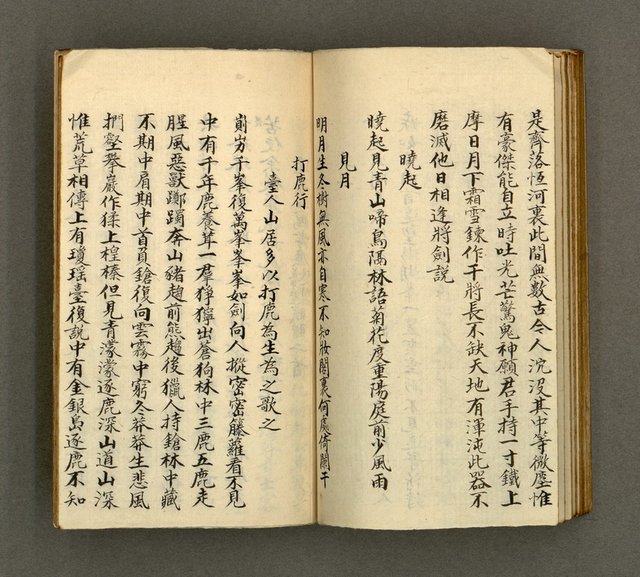 是齊落恆河裏此間無數古今人沉沒其中等微塵惟
有豪傑能自立時吐光芒驚鬼神願君手持一寸鐵上
摩日月下霜雪鍊作干將長不缺天地有渾沌此器不
磨滅他日相逢將劍說
曉起
曉起見青山啼鳥隔林語菊花度重陽庭前少風雨
見月
明月生冬樹無風亦自寒不知妝閣裏何處倚闌干
打鹿行
臺人山居多以打鹿為生為之歌之
崱屴千峯復萬峯峯峯如劍向人摐密密藤蘿看不見
中有千年鹿養茸一羣獐獰出蒼狗林中三鹿五鹿走
腥風惡獸躑躅奔山豬趨前熊趨後獵人持鎗林中藏
不期中肩期中首負鎗復向雲霧中窮冬莽莽生悲風
捫壑攀巖作猱上榿榛但見青濛濛逐鹿深山道山深
惟荒草相傳上有瓊瑤臺復說中有金銀島逐鹿不知